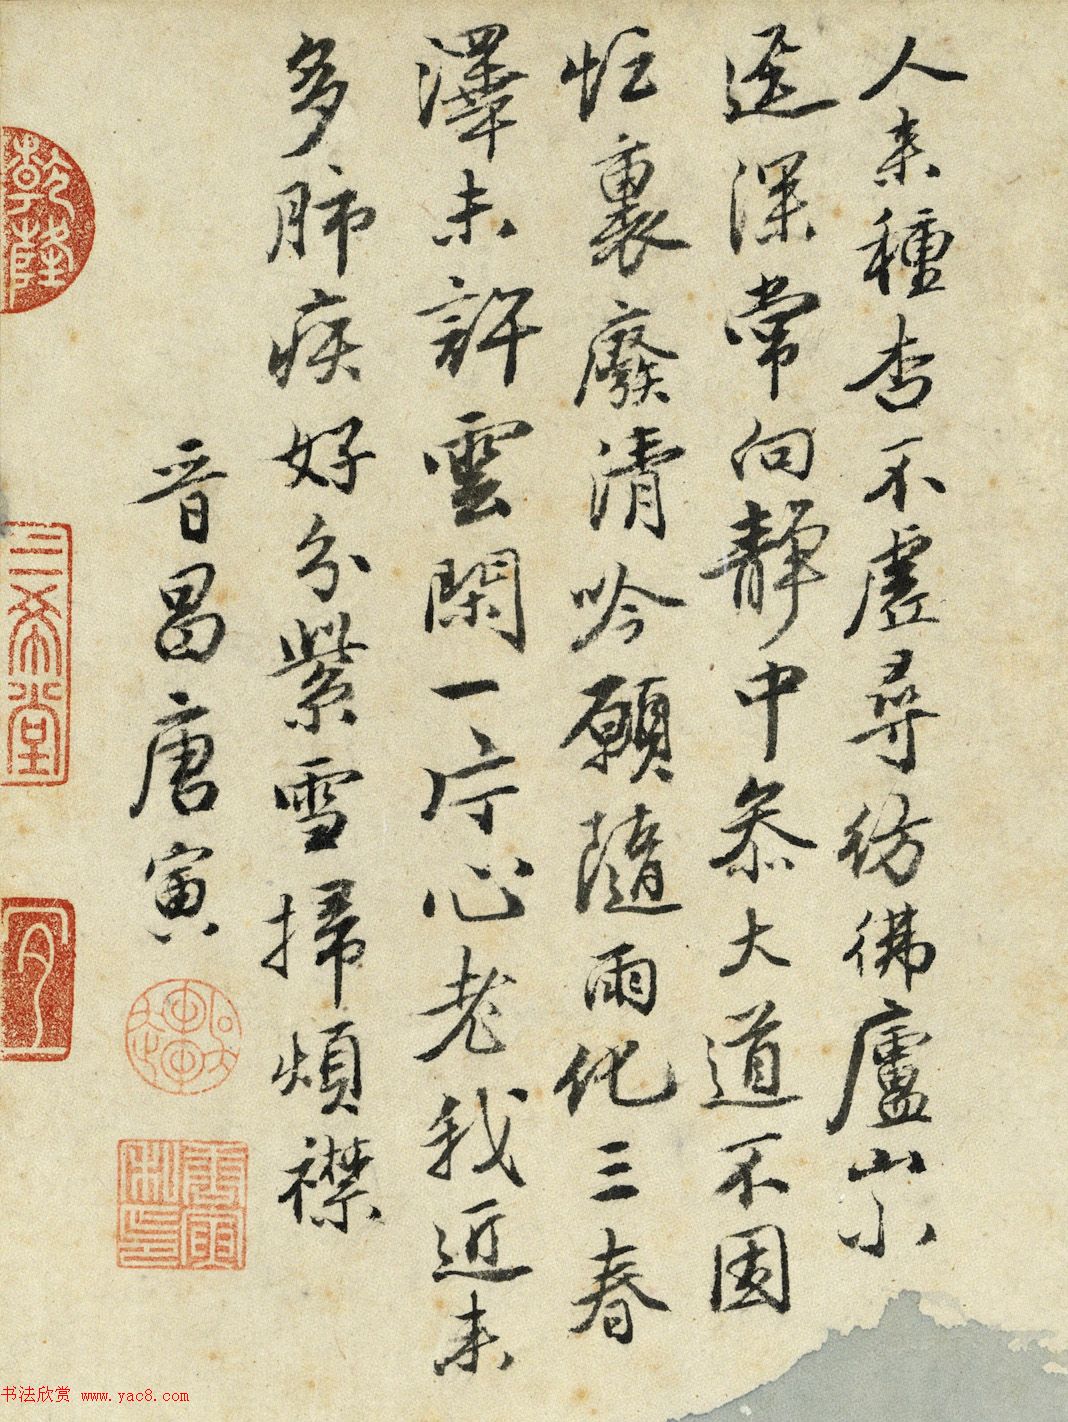 人來種杏不虛尋彷彿廬山小
逕深常向靜中參大道不因
忙裏廢清吟願隨雨化三春
澤未許雲閑一片心老我近來
多肺疾好分紫雪掃煩襟
晉昌唐寅
乾隆
三希堂
書法欣赏 www.yac8.com